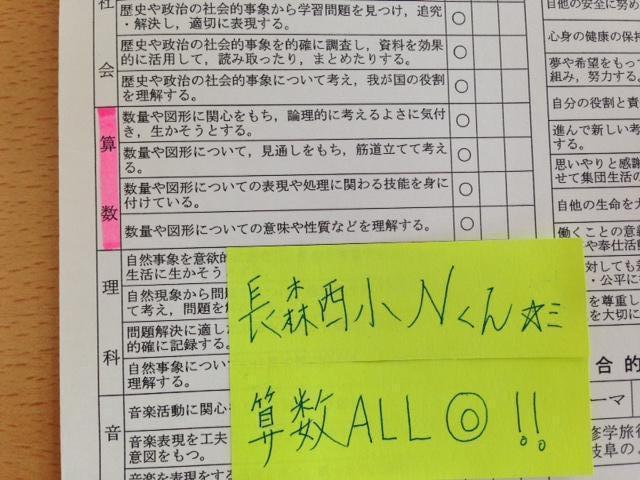 社会
歴史や政治の社会的事象から学習問題を見つけ，追究
・解決し，適切に表現する。
○
歴史や政治の社会的事象を的確に調査し，資料を効果
的に活用して，読み取ったり，まとめたりする。
○
歴史や政治の社会的事象について考え，我が国の役割
を理解する。
○
算数
数量や図形に関心をもち，論理的に考えるよさに気付
き，生かそうとする。
○
数量や図形について，見通しをもち，筋道立てて考え
る。
○
数量や図形についての表現や処理に関わる技能を身に
付けている。
○
数量や図形についての意味や性質などを理解する。
○
理科
自然事象を意欲的
生活に生かそう
自然現象から問
て考え，問題を
問題解決に適し
的確に記録する。
自然事象につい
理解する。
音
音楽活動に関心
音楽表現を工夫
意図をもつ。
音楽を表現をする
自他の安全に努め
心身の健康の保持
夢や希望をもって
組み，努力する。
自分の役割と責
進んで新しい考
する。
思いやりと感謝
せて集団生活の
自他の生命を大
働くことの意義
や奉仕活
対しても
・公平に
を尊重し
大切に
合的
ーマ
修学旅行
岐阜の
長森西小Nくん☆ミ
算数ALL◎!!